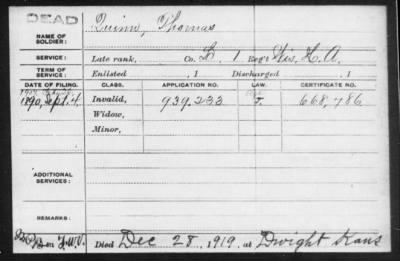 DEAD
NAME OF SOLDIER: Quinn, Thomas
SERVICE: Late rank, Co. L, 1 Reg't Wis. H. A.
TERM OF SERVICE: Enlisted , 1 Discharged , 1
DATE OF FILING. CLASS. APPLICATION NO. LAW. CERTIFICATE NO.
1890, Sept. 4. Invalid, 939.233 668,786
Widow,
Minor,
ADDITIONAL SERVICES:
REMARKS:
Died Dec 28, 1919, at Dwight Kans